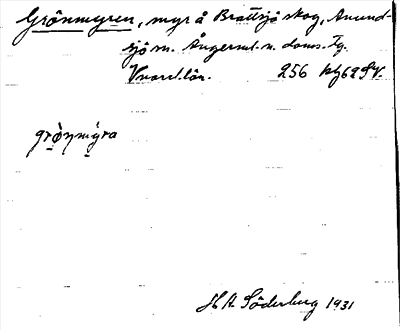 Grönmyren, myr å Brattsjö skog, Anund-
sjö sn. Ångerml. n. doms. Tg.
Vnorrl. län. 256 kbg 62 SV.
grönmyra
H A Söderberg 1931